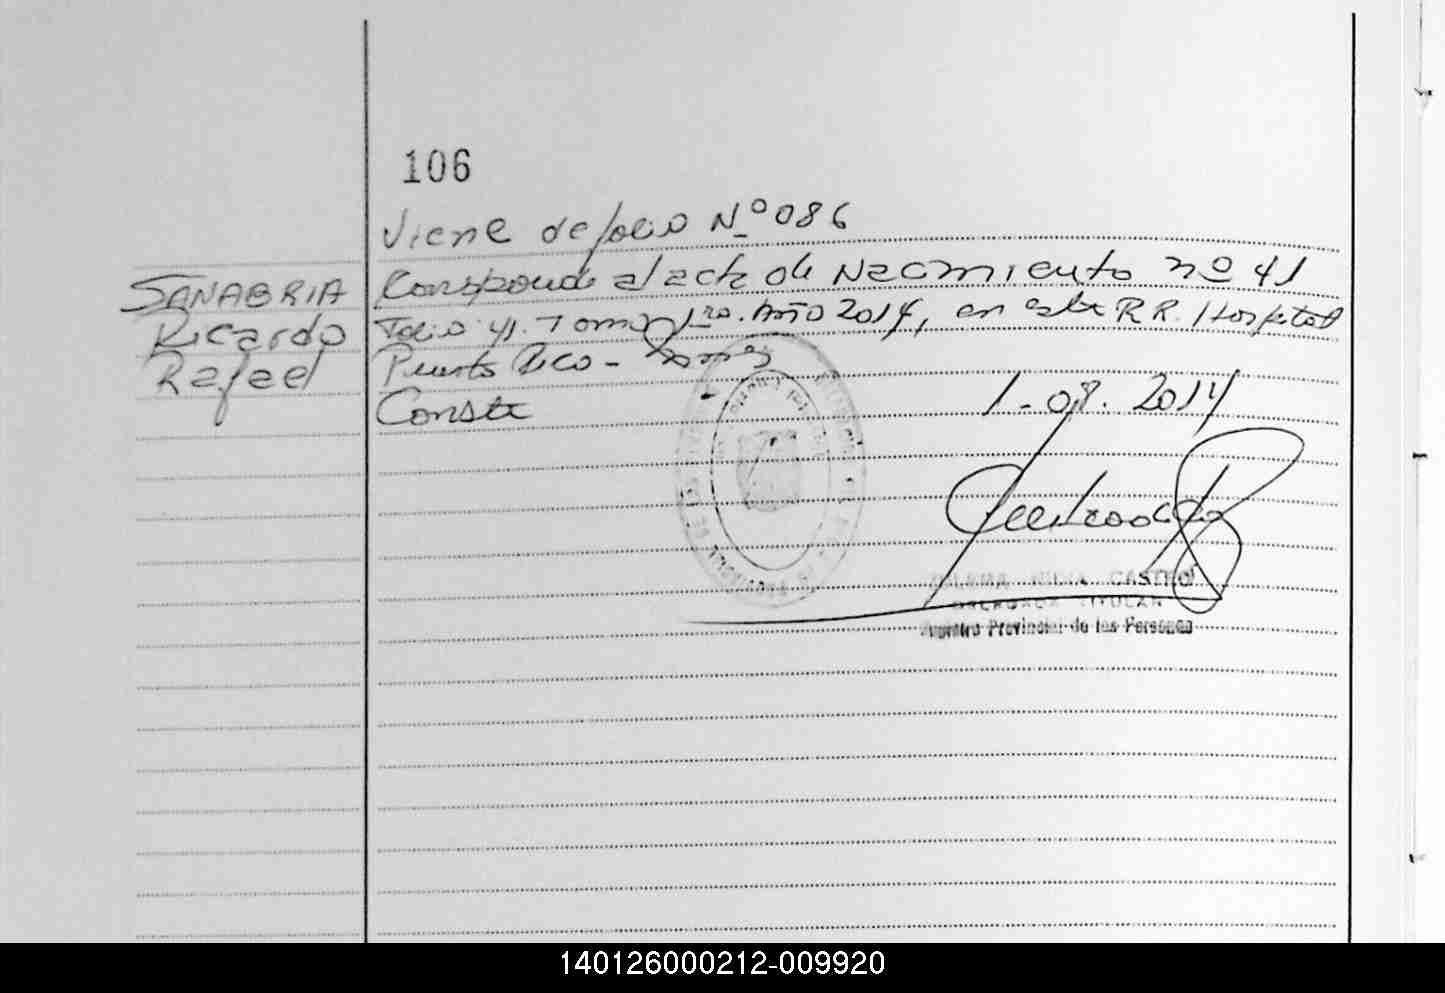 106
Viene de folio Nº 086
SANABRIA
Ricardo
Rafael
Corresponde al acta de Nacimiento nº 41
Folio 41. Tomo 1ro. Año 2014, en esta R R. Hospital
Puerto Rico - 
Conste
1-08. 2014
CASTRO
TITULAR
Registro Provincial de las Personas
140126000212-009920